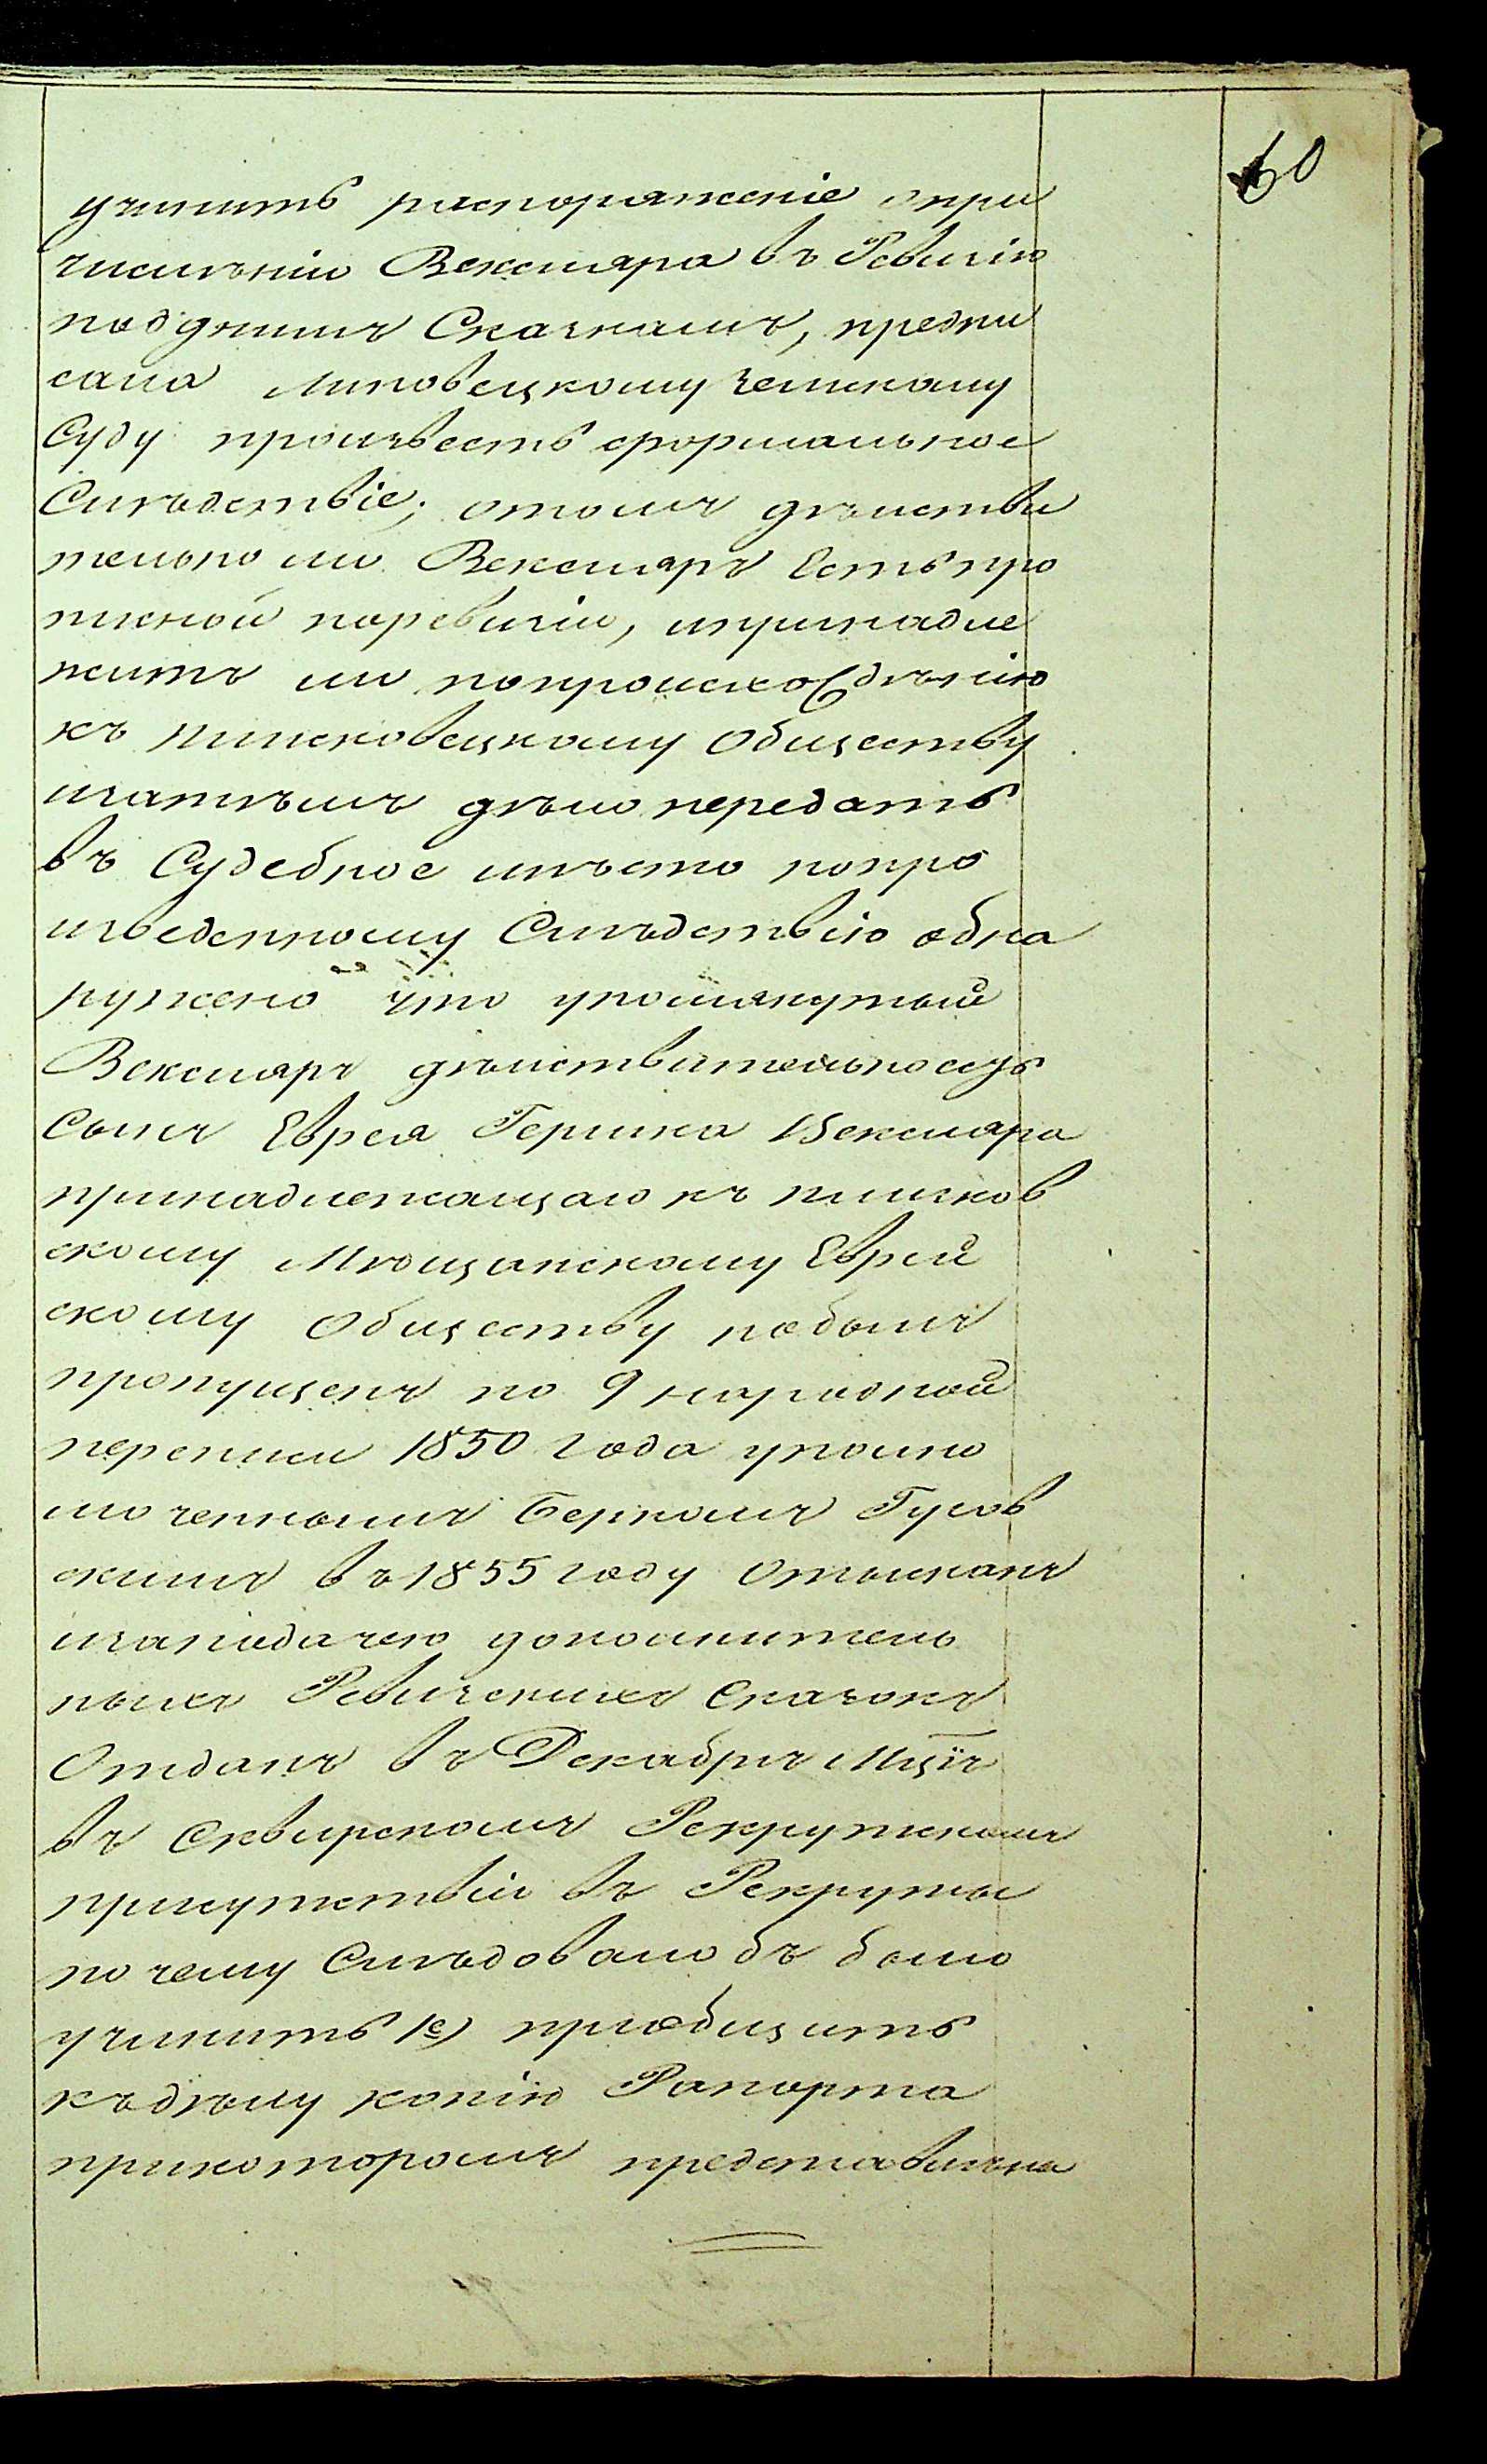 60
учинить распоряженіе опри
числѣніи Вексляра въ Ревизію
поддѣнимъ Сказкамъ, предпи
сала Липовецкому Земскому
Суду произвесть формальное
Слѣдствіе; отомъ дѣистви
тельно ли Вексляръ Есть про
писной поревизіи, ипринадле
житъ ли попроисхожденію
къ Лисковецкому Обществу
изатѣмъ дѣло передать
въ Судебное мѣсто попро
изведенному Слѣдствію обна
ружено что упомянутый
Векслярь дѣиствительно есть
Сынъ Еврея Гершка Векслара
принадлежащаго къ
скому Мѣщанскому Еврей
скому Обществу небылъ
пропущенъ по 9 народной
переписи 1850 года уполно
моченнымъ Беркомъ Гусов
скимъ въ 1855 году Отысканъ
изаподачею дополнитель
ныхъ Ревизскихъ Сказокъ
Отданъ въ Декабрѣ Мцѣ
въ Сквирскомъ Рекрутскомъ
присутствіи въ Рекруты
по чему Слѣдовало бъ было
учинить 1е) приобщить
къдѣлу копію Рапорта
прикоторомъ представлена